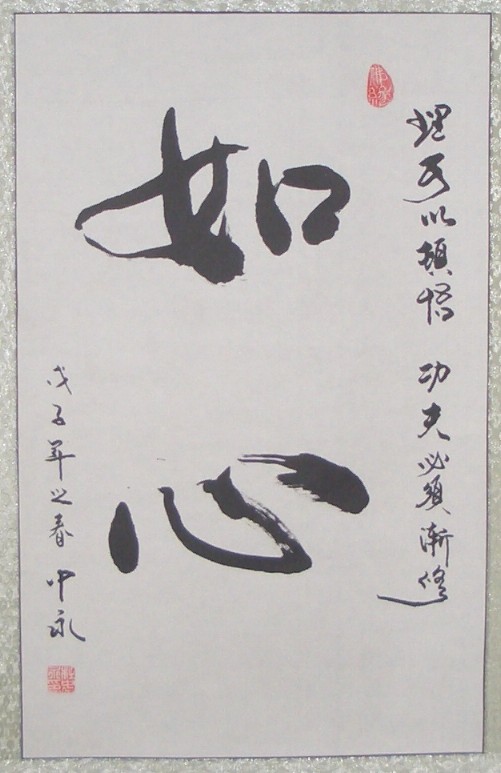 理可以頓悟 功夫必須漸修
如心
戊子年之春 中永